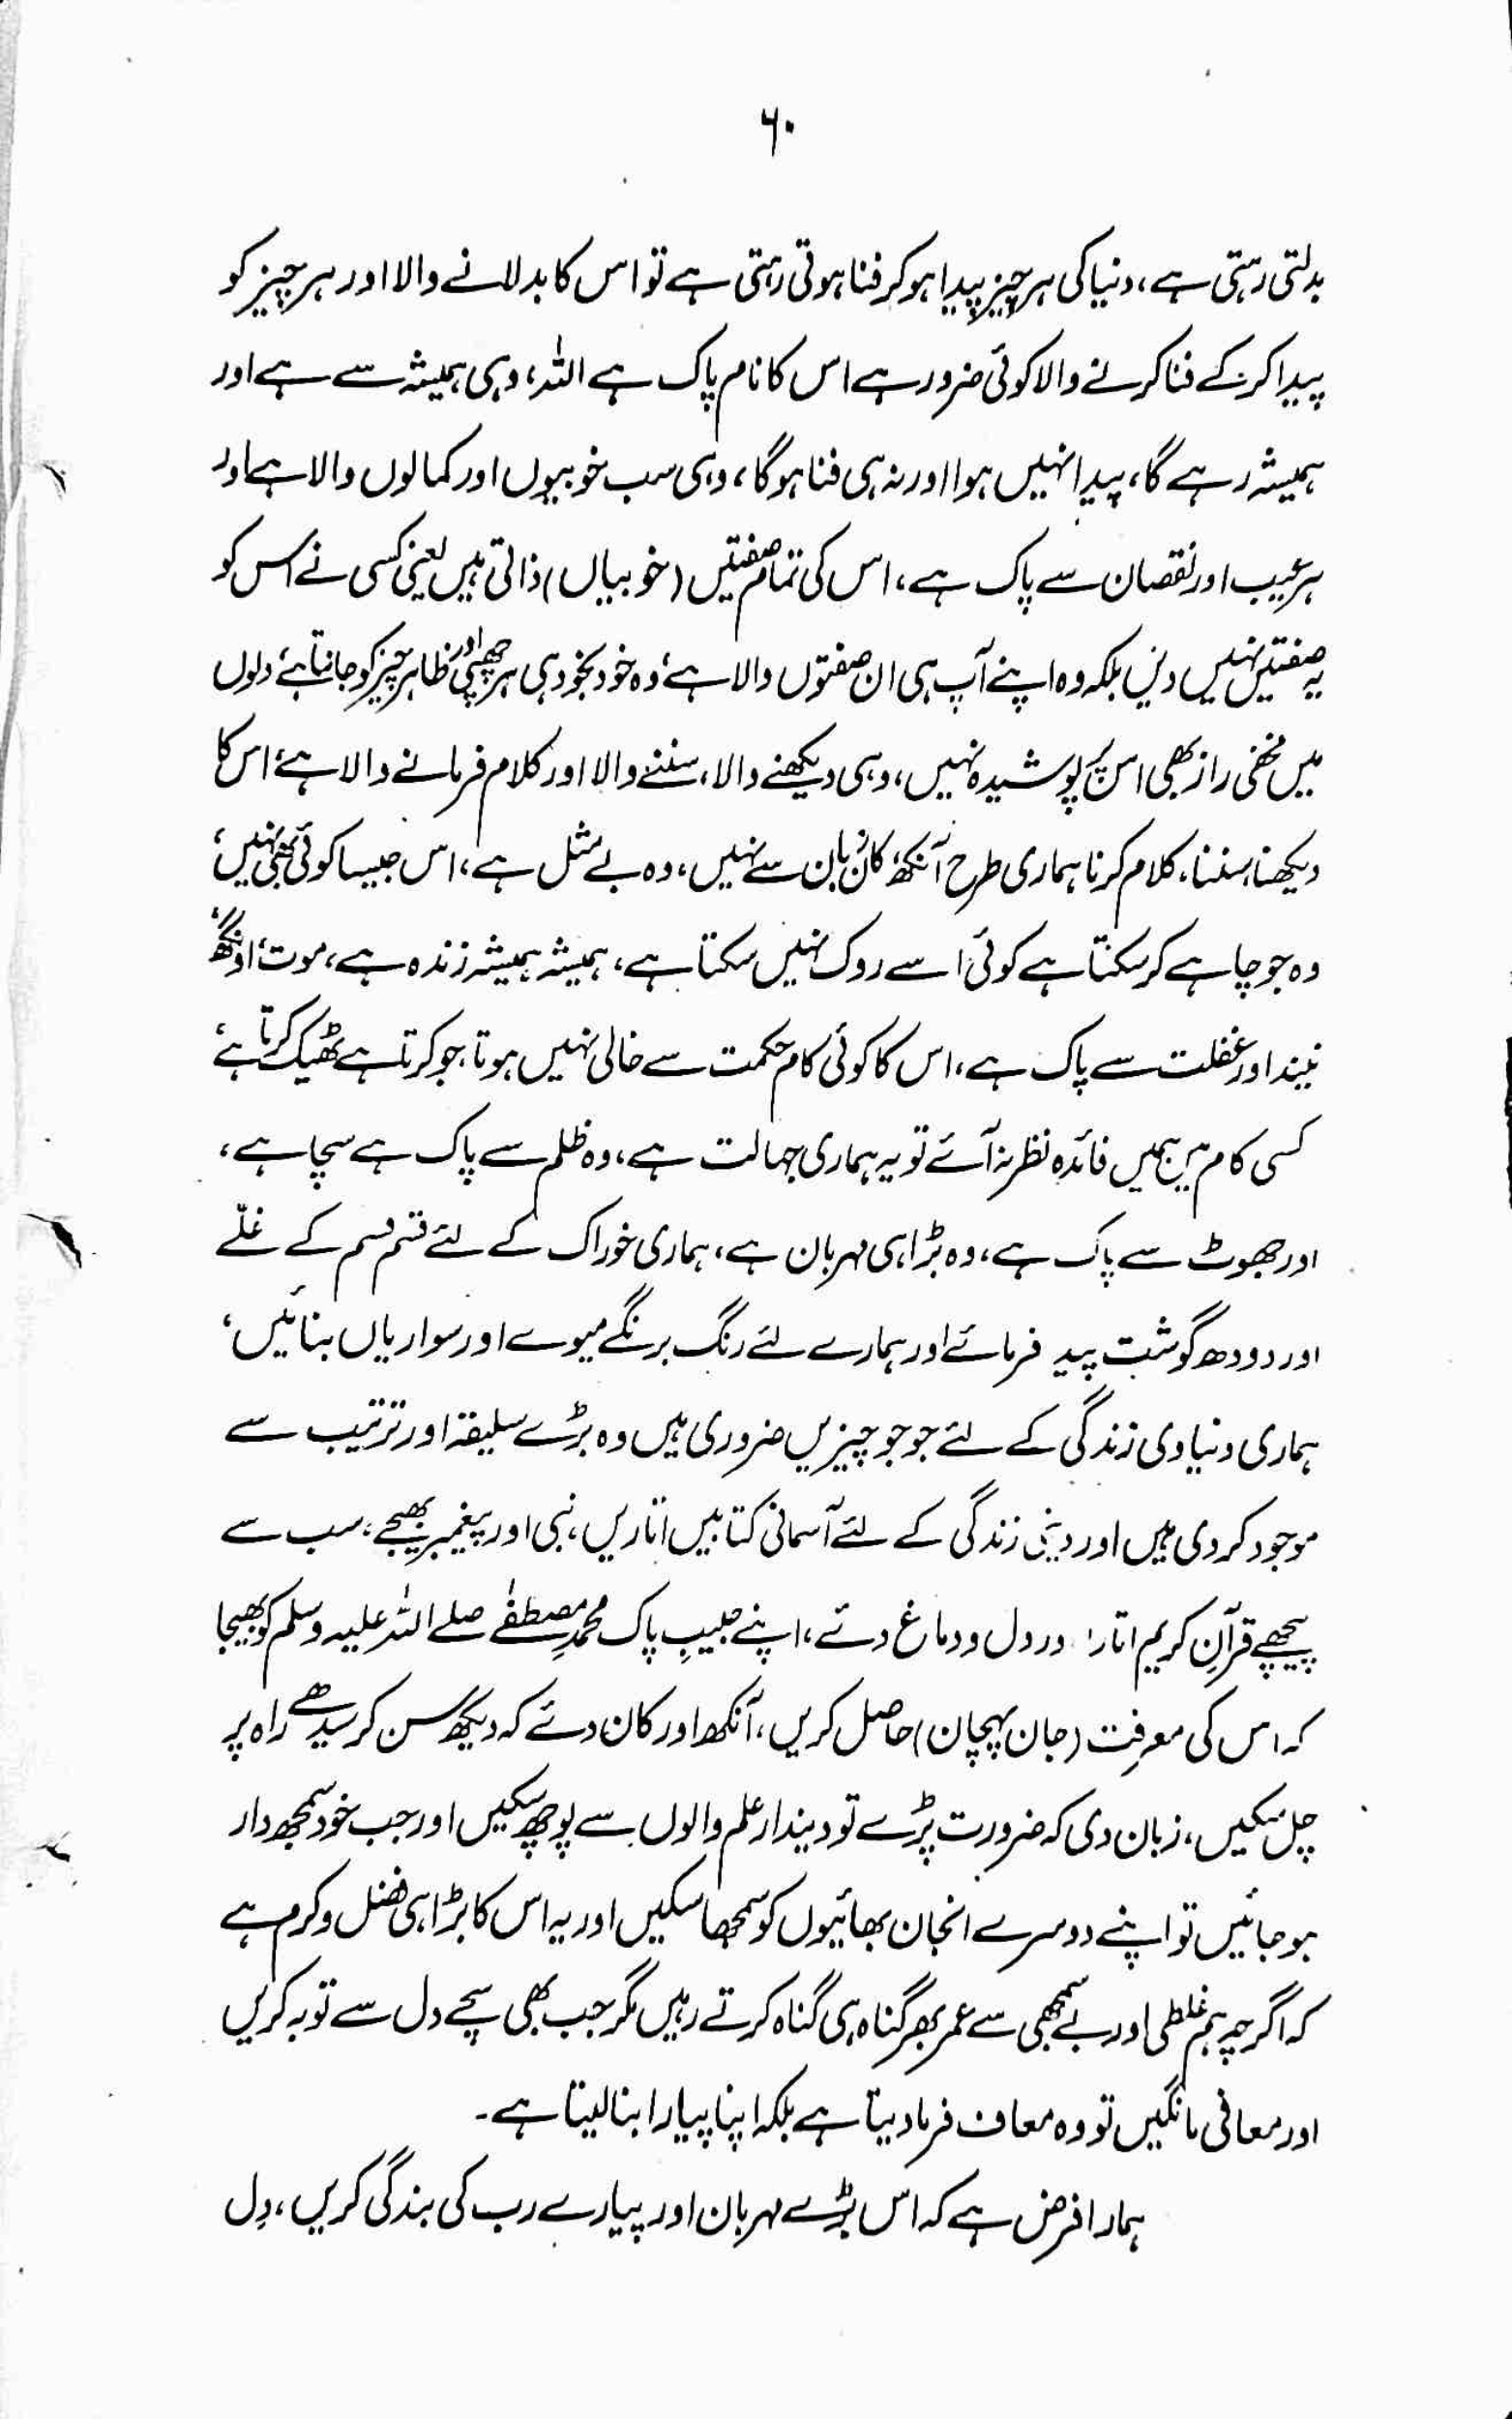 ۶۰
بدلتی رہتی ہے، دنیا کی ہر چیز پیدا ہو کر فنا ہوتی رہتی ہے تو اس کا بدلانے والا اور ہر چیز کو
پیدا کر کے فنا کرنے والا کوئی ضرور ہے اس کا نام پاک ہے اللہ، وہی ہمیشہ سے ہے اور
ہمیشہ رہے گا، پیدا نہیں ہوا اور نہ ہی فنا ہوگا، وہی سب خوبیوں اور کمالوں والا ہے اور
ہر عیب اور نقصان سے پاک ہے، اس کی تمام صفتیں (خوبیاں) ذاتی ہیں یعنی کسی نے اس کو
یہ صفتیں نہیں دیں بلکہ وہ اپنے آپ ہی ان صفتوں والا ہے، وہ خود بخود ہی ہر چھپی اور ظاہر چیز کو جانتا ہے، دلوں
میں مخفی راز بھی اس پر پوشیدہ نہیں، وہی دیکھنے والا، سننے والا اور کلام فرمانے والا ہے، اس کا
دیکھنا، سننا، کلام کرنا ہماری طرح آنکھ، کان، زبان سے نہیں، وہ بے مثل ہے، اس جیسا کوئی بھی نہیں،
وہ جو چاہے کر سکتا ہے کوئی اسے روک نہیں سکتا ہے، ہمیشہ ہمیشہ زندہ ہے، موت، اونگھ،
نیند اور غفلت سے پاک ہے، اس کا کوئی کام حکمت سے خالی نہیں ہوتا، جو کرتا ہے ٹھیک کرتا ہے،
کسی کام میں ہمیں فائدہ نظر نہ آئے تو یہ ہماری جہالت ہے، وہ ظلم سے پاک ہے سچا ہے،
اور جھوٹ سے پاک ہے، وہ بڑا ہی مہربان ہے، ہماری خوراک کے لئے قسم قسم کے غلّے
اور دودھ گوشت پید فرمائے اور ہمارے لئے رنگ برنگے میوے اور سواریاں بنائیں،
ہماری دنیاوی زندگی کے لئے جو جو چیزیں ضروری ہیں وہ بڑے سلیقہ اور ترتیب سے
موجود کر دی ہیں اور دینی زندگی کے لئے آسمانی کتابیں اتاریں، نبی اور پیغمبر بھیجے، سب سے
پیچھے قرآنِ کریم اتارا، ور دل و دماغ دئے، اپنے حبیبِ پاک محمد مصطفٰے صلے اللہ علیہ وسلم کو بھیجا
کہ اس کی معرفت (جان پہچان) حاصل کریں، آنکھ اور کان دئے کہ دیکھ سن کر سیدھے راہ پر
چل سکیں، زبان دی کہ ضرورت پڑے تو دیندار علم والوں سے پوچھ سکیں اور جب خود سمجھ دار
ہو جائیں تو اپنے دوسرے انجان بھائیوں کو سمجھا سکیں اور یہ اس کا بڑا ہی فضل و کرم ہے
کہ اگرچہ ہم غلطی اور بے سمجھی سے عمر بھر گناہ ہی گناہ کرتے رہیں مگر جب بھی سچے دل سے توبہ کریں
اور معافی مانگیں تو وہ معاف فرما دیتا ہے بلکہ اپنا پیارا بنا لیتا ہے۔
ہمارا فرض ہے کہ اس بڑے مہربان اور پیارے رب کی بندگی کریں، دِل